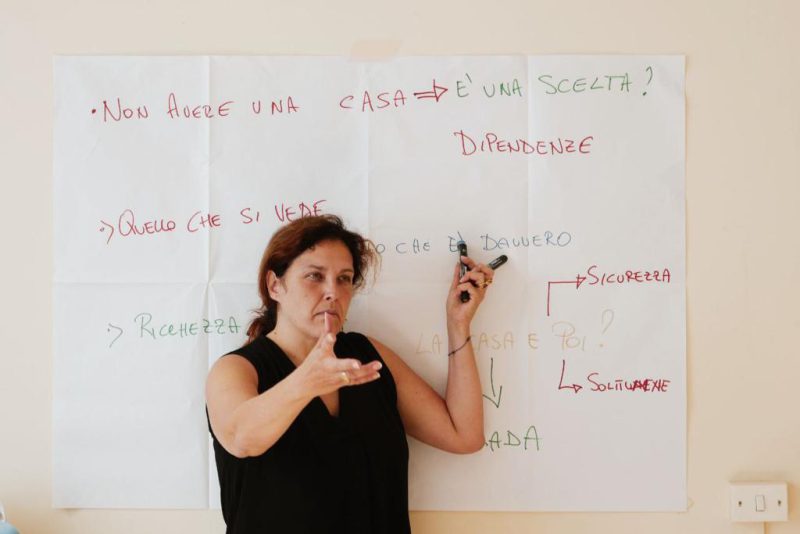 • NON AVERE UNA CASA ⇒ E' UNA SCELTA?
DIPENDENZE
:> QUELLO CHE SI VEDE
CHE E' DAVVERO
SICUREZZA
:> RICCHEZZA
LA CASA E POI?